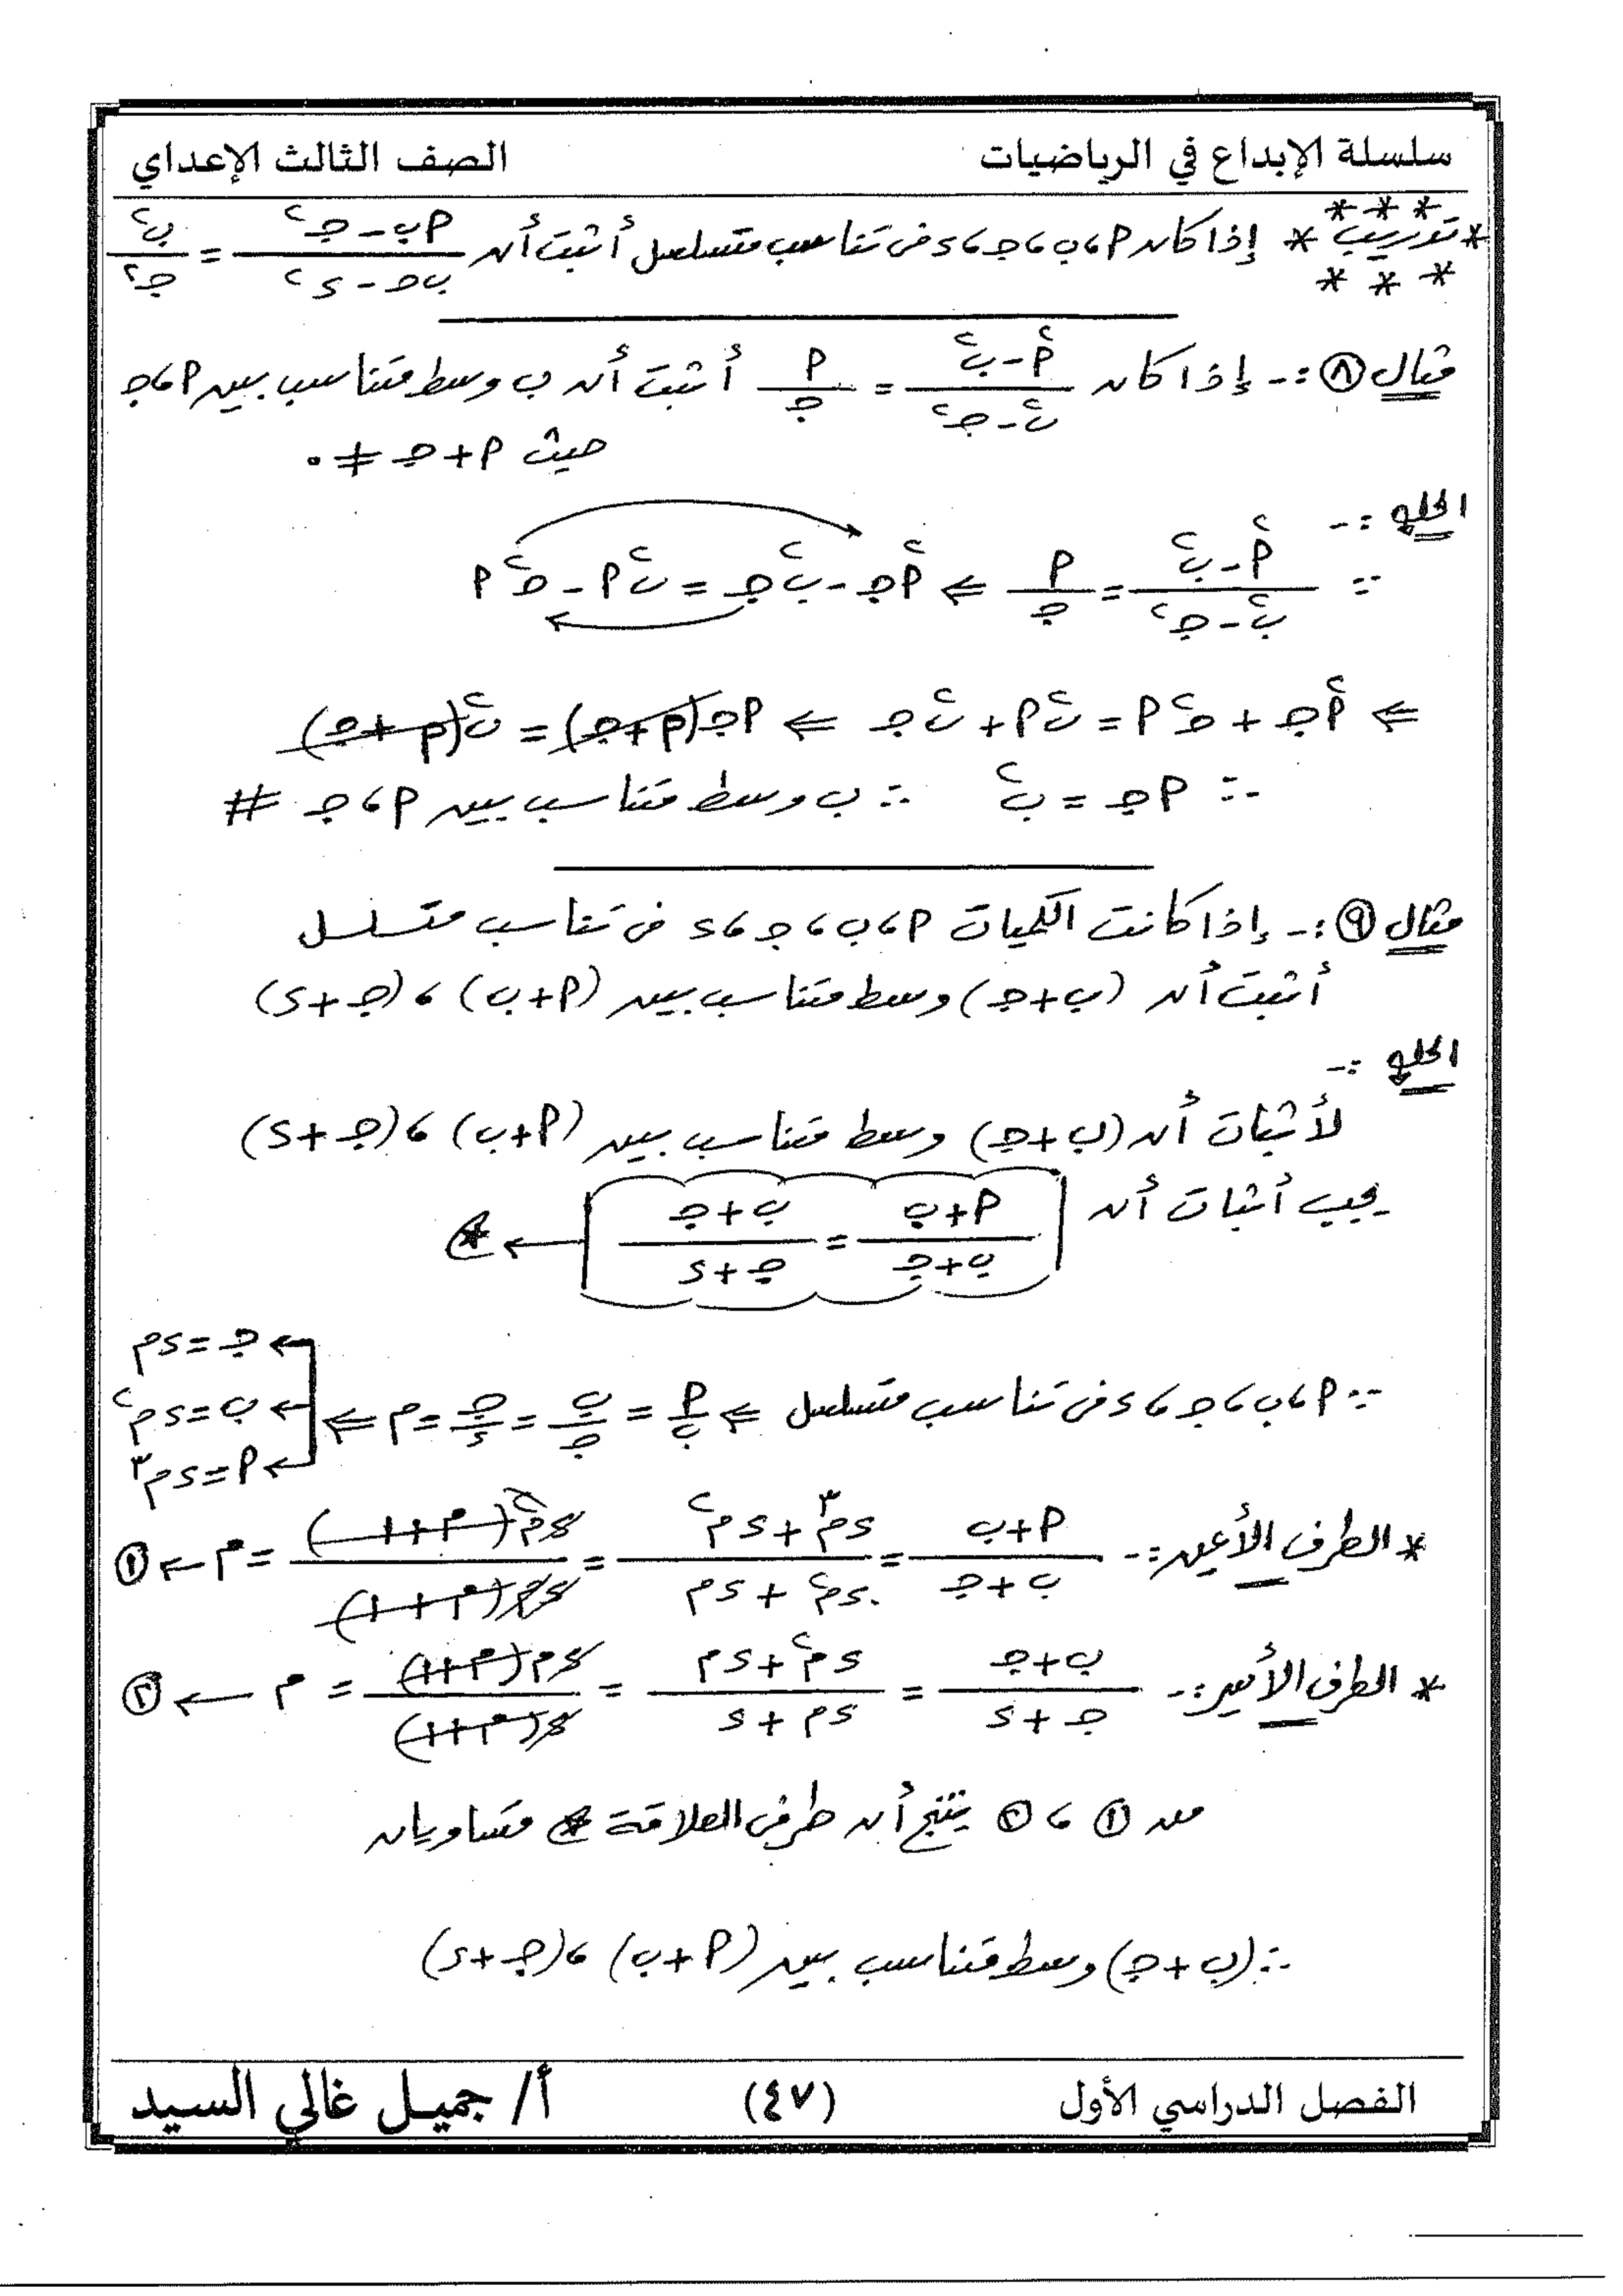 سلسلة الإبداع في الرياضيات الصف الثالث الإعداي
* تدريب * إذا كان أ، ب، جـ، د فى تناسب متسلسل أثبت أن (أب - جـ²)/(ب جـ - د²) = ب²/جـ²
مثال (٨) :- إذا كان (أ² - ب²)/(ب² - جـ²) = أ/جـ أثبت أن ب وسط متناسب بين أ، جـ
حيث أ + جـ ≠ ٠
الحل :-
∵ (أ² - ب²)/(ب² - جـ²) = أ/جـ ⇐ أ²جـ - ب²جـ = ب²أ - جـ²أ
⇐ أ²جـ + جـ²أ = ب²أ + ب²جـ ⇐ أجـ(أ + جـ) = ب²(أ + جـ)
∴ أجـ = ب² ∴ ب وسط متناسب بين أ، جـ #
مثال (٩) :- إذا كانت الكميات أ، ب، جـ، د فى تناسب متسلسل
أثبت أن (ب + جـ) وسط متناسب بين (أ + ب)، (جـ + د)
الحل :-
لأثبات أن (ب + جـ) وسط متناسب بين (أ + ب)، (جـ + د)
يجب أثبات أن (أ + ب)/(ب + جـ) = (ب + جـ)/(جـ + د) ← *
∵ أ، ب، جـ، د فى تناسب متسلسل ⇐ أ/ب = ب/جـ = جـ/د = م ⇐
← جـ = د م
← ب = د م²
← أ = د م³
* الطرف الأيمن :- (أ + ب)/(ب + جـ) = (د م³ + د م²)/(د م² + د م) = د م²(م + ١)/د م(م + ١) = م ← (١)
* الطرف الأيسر :- (ب + جـ)/(جـ + د) = (د م² + د م)/(د م + د) = د م(م + ١)/د(م + ١) = م ← (٢)
من (١)، (٢) ينتج أن طرفى العلاقة * متساويان
∴ (ب + جـ) وسط متناسب بين (أ + ب)، (جـ + د)
الفصل الدراسي الأول (٤٧) أ/ جميل غالي السيد